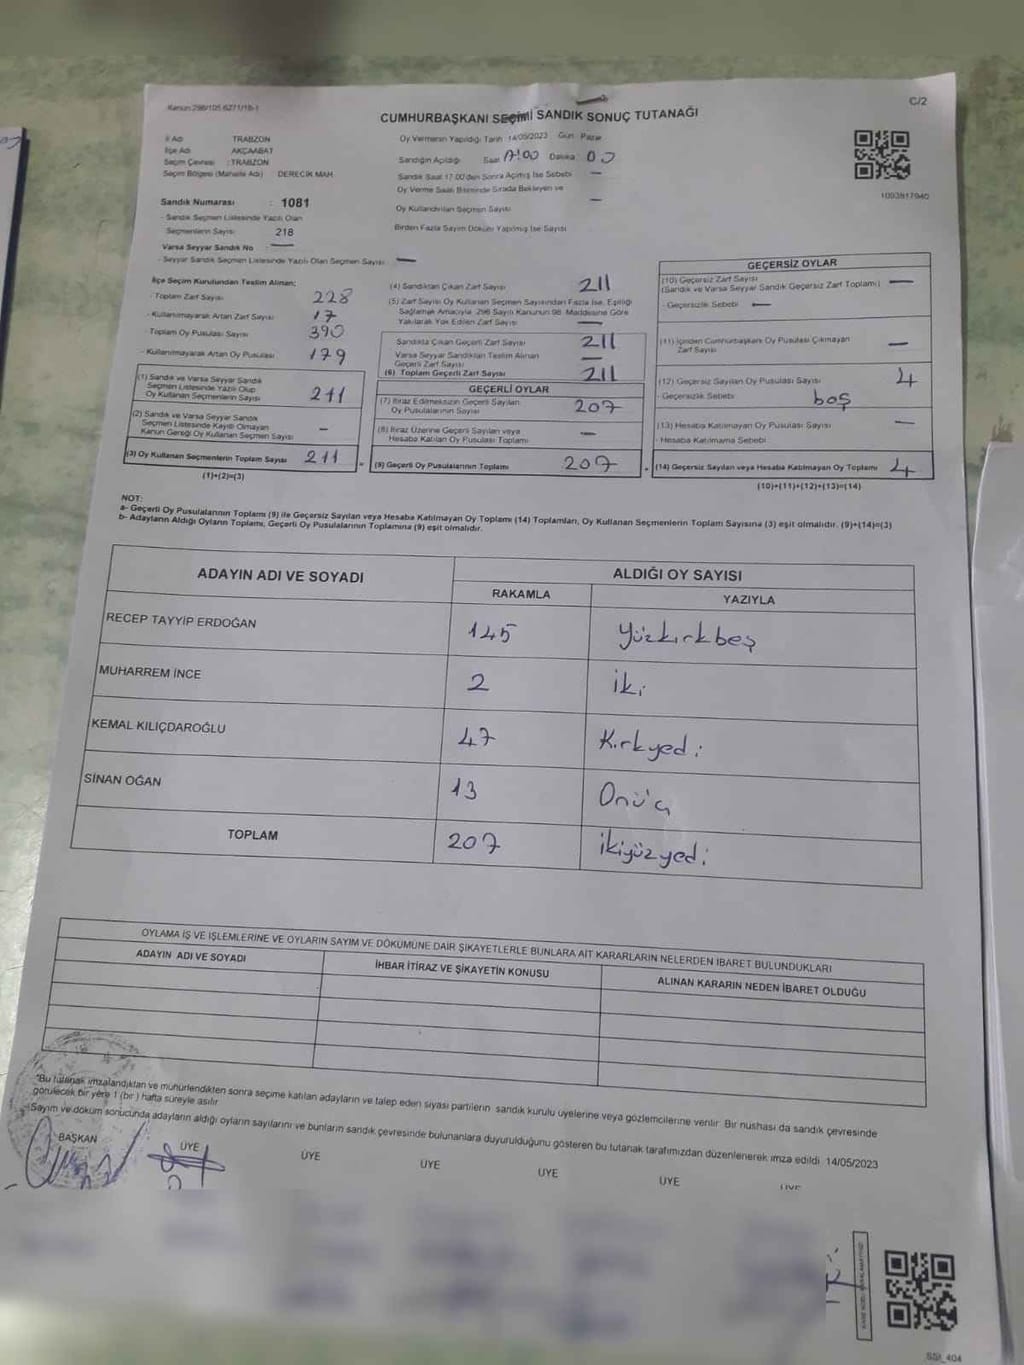 Kanun:298/105-6271/16-1
C/2
CUMHURBAŞKANI SEÇİMİ SANDIK SONUÇ TUTANAĞI
İl Adı TRABZON
İlçe Adı AKÇAABAT
Seçim Çevresi : TRABZON
Seçim Bölgesi (Mahalle Adı) DERECİK MAH.
Sandık Numarası : 1081
- Sandık Seçmen Listesinde Yazılı Olan
Seçmenlerin Sayısı 218
Varsa Seyyar Sandık No —
- Seyyar Sandık Seçmen Listesinde Yazılı Olan Seçmen Sayısı —
Oy Vermenin Yapıldığı Tarih 14/05/2023 Gün Pazar
Sandığın Açıldığı Saat 17:00 Dakika 00
Sandık Saat 17.00'den Sonra Açılmış İse Sebebi —
Oy Verme Saati Bitiminde Sırada Bekleyen ve
Oy Kullandırılan Seçmen Sayısı —
Birden Fazla Sayım Dökümü Yapılmış İse Sayısı
1003817940
İlçe Seçim Kurulundan Teslim Alınan;
- Toplam Zarf Sayısı 228
- Kullanılmayarak Artan Zarf Sayısı 17
- Toplam Oy Pusulası Sayısı 390
- Kullanılmayarak Artan Oy Pusulası 179
(1) Sandık ve Varsa Seyyar Sandık
Seçmen Listesinde Yazılı Olup
Oy Kullanan Seçmenlerin Sayısı 211
(2) Sandık ve Varsa Seyyar Sandık
Seçmen Listesinde Kayıtlı Olmayan
Kanun Gereği Oy Kullanan Seçmen Sayısı —
(3) Oy Kullanan Seçmenlerin Toplam Sayısı 211
(1)+(2)=(3)
(4) Sandıktan Çıkan Zarf Sayısı 211
(5) Zarf Sayısı Oy Kullanan Seçmen Sayısından Fazla İse, Eşitliği
Sağlamak Amacıyla, 298 Sayılı Kanunun 98. Maddesine Göre
Yakılarak Yok Edilen Zarf Sayısı —
Sandıkta Çıkan Geçerli Zarf Sayısı 211
Varsa Seyyar Sandıktan Teslim Alınan
Geçerli Zarf Sayısı —
(6) Toplam Geçerli Zarf Sayısı 211
GEÇERLİ OYLAR
(7) İtiraz Edilmeksizin Geçerli Sayılan
Oy Pusulalarının Sayısı 207
(8) İtiraz Üzerine Geçerli Sayılan veya
Hesaba Katılan Oy Pusulası Toplamı —
(9) Geçerli Oy Pusulalarının Toplamı 207
GEÇERSİZ OYLAR
(10) Geçersiz Zarf Sayısı
(Sandık ve Varsa Seyyar Sandık Geçersiz Zarf Toplamı) —
- Geçersizlik Sebebi —
(11) İçinden Cumhurbaşkanı Oy Pusulası Çıkmayan
Zarf Sayısı —
(12) Geçersiz Sayılan Oy Pusulası Sayısı 4
- Geçersizlik Sebebi boş
(13) Hesaba Katılmayan Oy Pusulası Sayısı —
- Hesaba Katılmama Sebebi
(14) Geçersiz Sayılan veya Hesaba Katılmayan Oy Toplamı 4
(10)+(11)+(12)+(13)=(14)
NOT:
a- Geçerli Oy Pusulalarının Toplamı (9) ile Geçersiz Sayılan veya Hesaba Katılmayan Oy Toplamı (14) Toplamları, Oy Kullanan Seçmenlerin Toplam Sayısına (3) eşit olmalıdır. (9)+(14)=(3)
b- Adayların Aldığı Oyların Toplamı, Geçerli Oy Pusulalarının Toplamına (9) eşit olmalıdır.
ADAYIN ADI VE SOYADI
ALDIĞI OY SAYISI
RAKAMLA YAZIYLA
RECEP TAYYİP ERDOĞAN 145 Yüzkırkbeş
MUHARREM İNCE 2 iki
KEMAL KILIÇDAROĞLU 47 Kırkyedi
SİNAN OĞAN 13 Onüç
TOPLAM 207 ikiyüzyedi
OYLAMA İŞ VE İŞLEMLERİNE VE OYLARIN SAYIM VE DÖKÜMÜNE DAİR ŞİKAYETLERLE BUNLARA AİT KARARLARIN NELERDEN İBARET BULUNDUKLARI
ADAYIN ADI VE SOYADI
İHBAR İTİRAZ VE ŞİKAYETİN KONUSU
ALINAN KARARIN NEDEN İBARET OLDUĞU
*Bu tutanak imzalandıktan ve mühürlendikten sonra seçime katılan adayların ve talep eden siyasi partilerin sandık kurulu üyelerine veya gözlemcilerine verilir. Bir nüshası da sandık çevresinde
görülecek bir yere 1 (bir) hafta süreyle asılır.
Sayım ve döküm sonucunda adayların aldığı oyların sayılarını ve bunların sandık çevresinde bulunanlara duyurulduğunu gösteren bu tutanak tarafımızdan düzenlenerek imza edildi. 14/05/2023
BAŞKAN ÜYE ÜYE ÜYE ÜYE ÜYE ÜYE
SSI_404